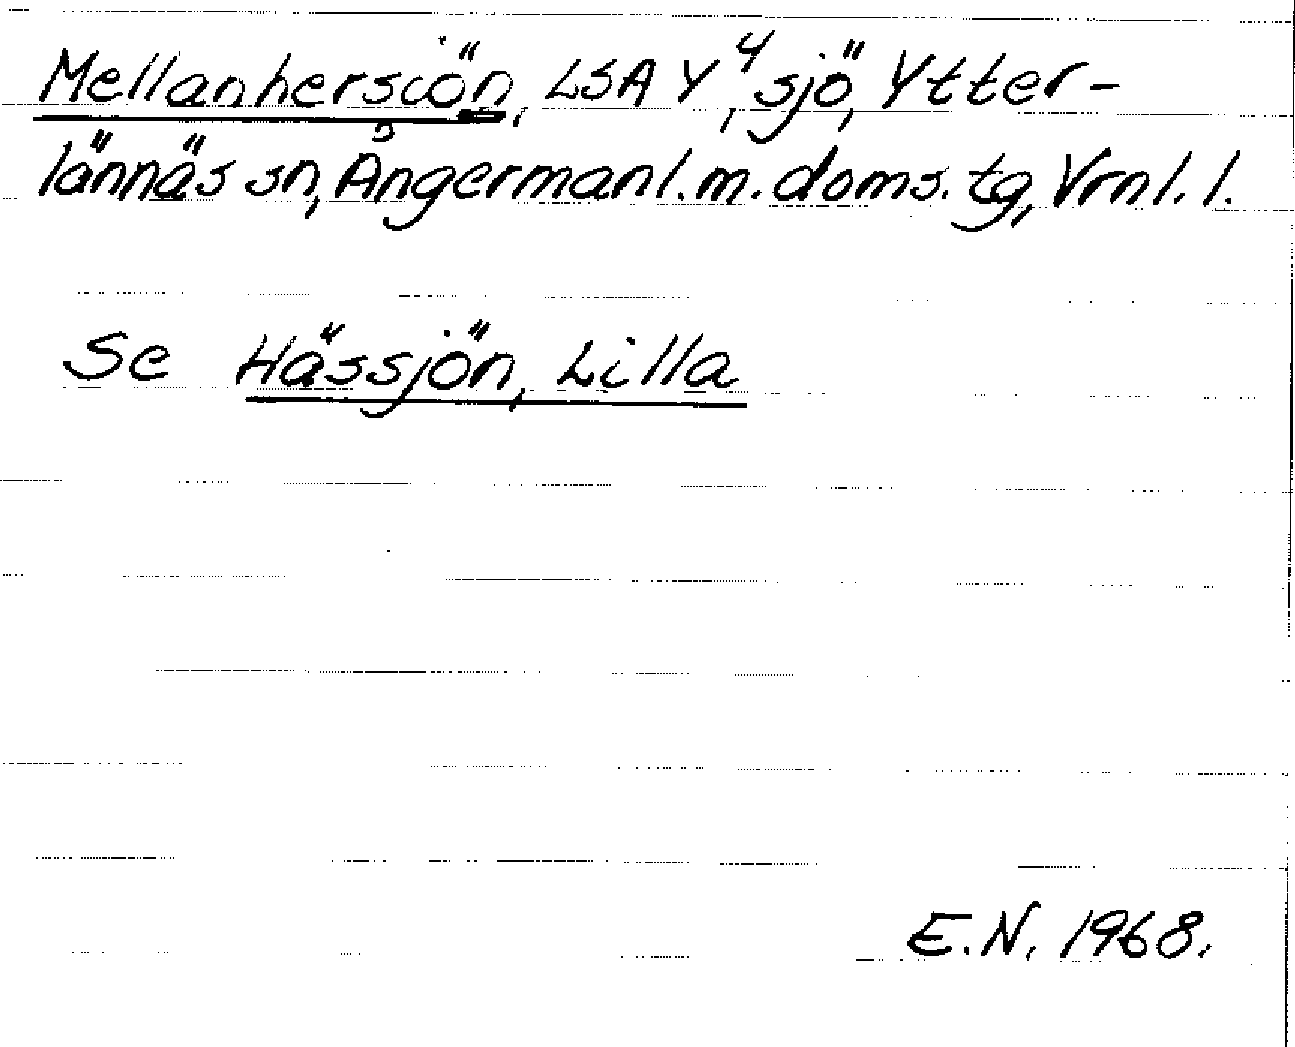 Mellanhersiön, LSA Y⁴, sjö, Ytter-
lännäs sn, Ångermanl. m. doms. tg, Vrnl. l.
Se Hässjön, Lilla
E.N. 1968.